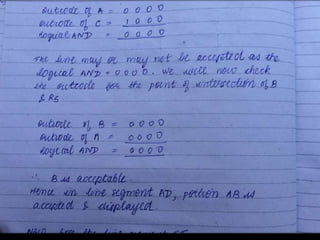 outcode of A = 0 0 0 0
outcode of C = 1 0 0 0
Logical AND = 0 0 0 0
The line may or may not be accepted as the
logical AND = 0 0 0 0. We will now check
the outcode for the point of intersection of B
& RS
outcode of B = 0 0 0 0
outcode of A = 0 0 0 0
Logical AND = 0 0 0 0
∴ B is acceptable
Hence in line segment AD, portion AB is
accepted & displayed